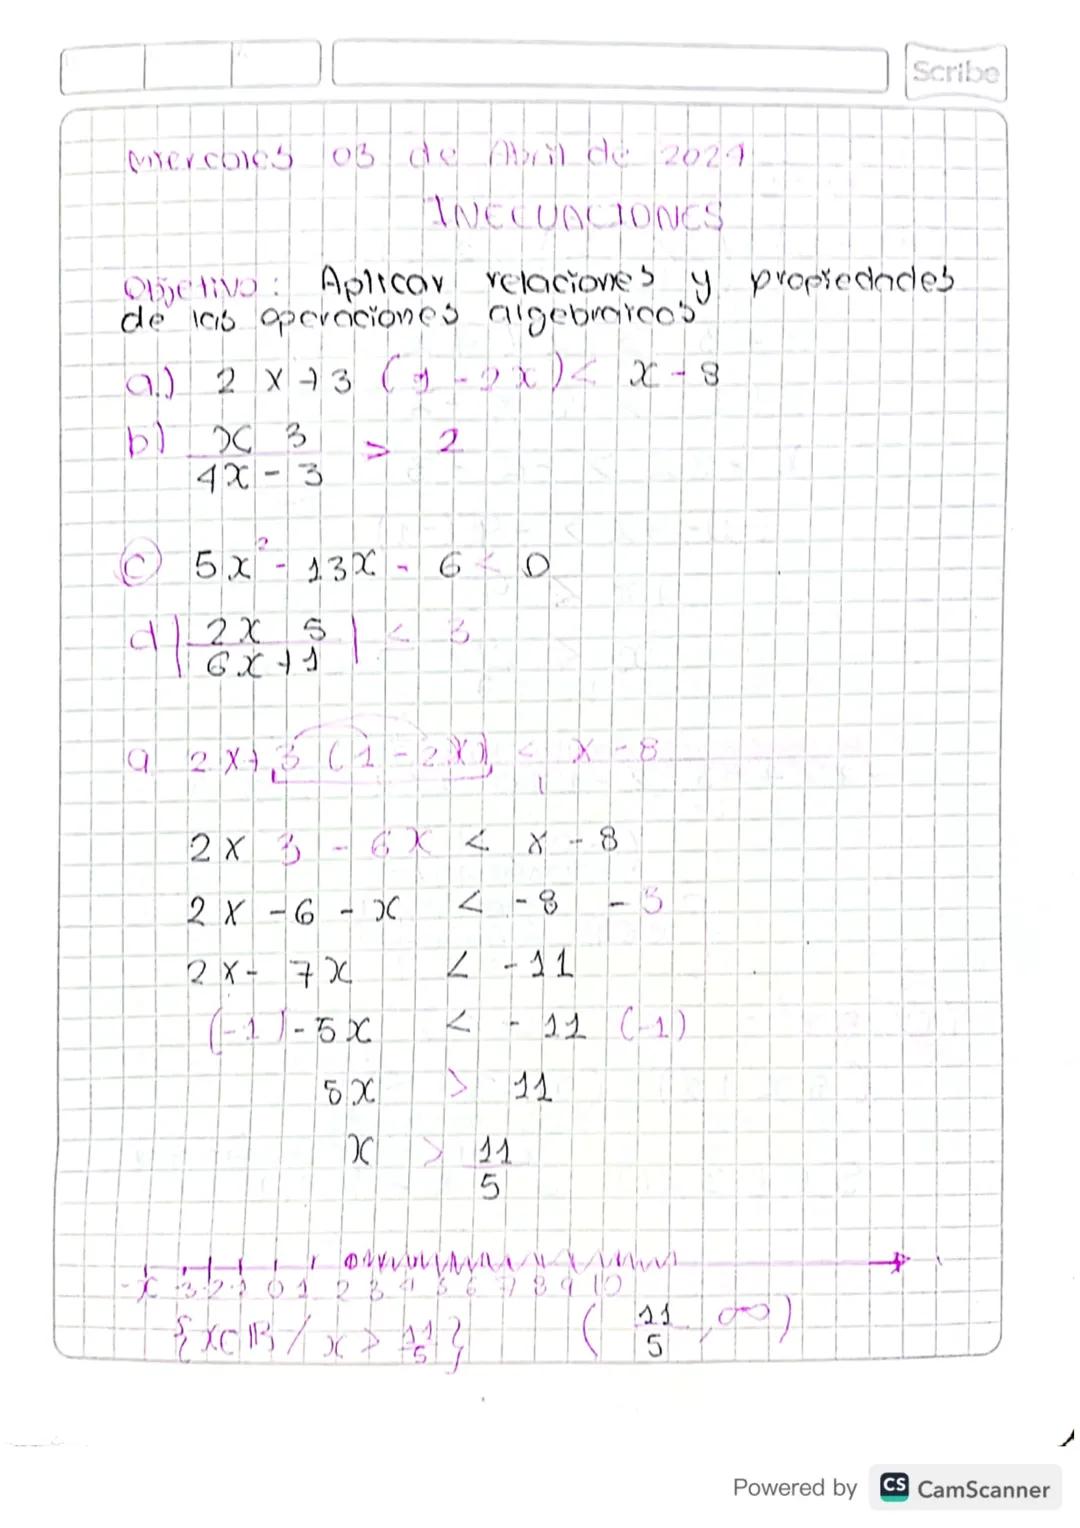 Scribe
Miercoles 03 de Abril de 2021
INECUACIONES
Objetivo: Aplicar relaciones y propiedades
de las operaciones algebraicas
a.) 2 x + 3 (1 - 2x) < x - 8
b) x 3 / 4x - 3 > 2
c 5x² - 13x - 6 < 0
d | 2x 5 / 6x + 1 | < 3
a 2x + 3 (1 - 2x) < x - 8
2x 3 - 6x < x - 8
2x - 6 - x < - 8 - 3
2x - 7x < - 11
(-1) - 5x < - 11 (-1)
5x > 11
x > 11/5
-x -3 -2 -1 0 1 2 3 4 5 6 7 8 9 10
{x∈IR / x > 11/5} ( 11/5 , ∞)
Powered by CS CamScanner